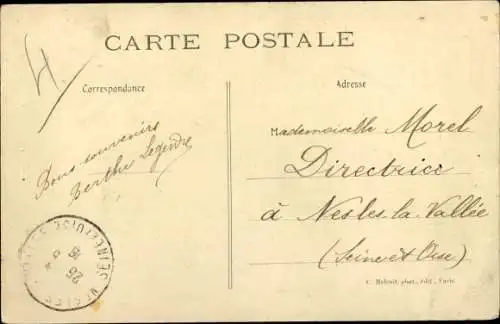 CARTE POSTALE
Correspondance
Adresse
Bons souvenirs
Berthe Legendre
Mademoiselle Morel
Directrice
à Nesles-la-Vallée
(Seine et Oise)
phot., édit., Paris
SEINE ET OISE